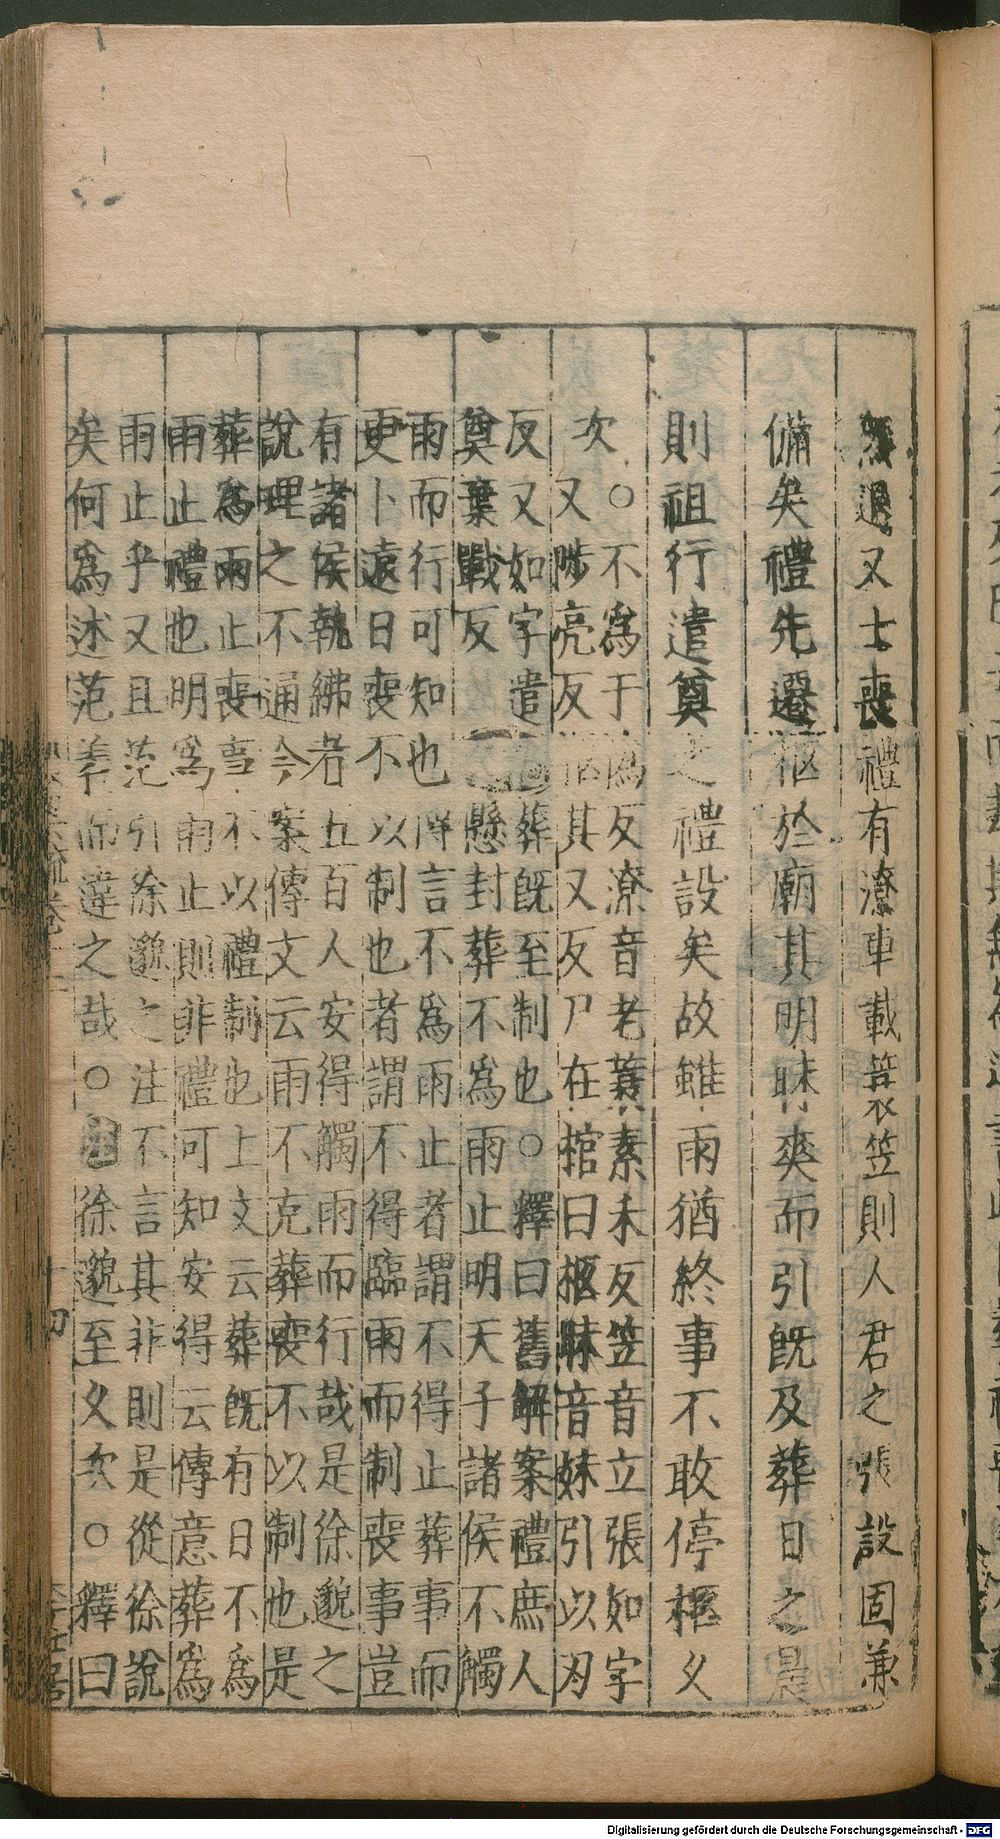 然過又士喪禮有潦車載蓑笠則人君之張設固兼
備矣禮先遷柩於廟其明昧爽而引旣及葬日之晨
則祖行遣奠之禮設矣故雖雨猶終事不敢停柩乆
次
○不爲于僞反潦音老蓑素禾反笠音立張如字
又陟亮反柩其又反尸在棺曰柩昧音妹引以刃
反又如字遣
奠棄戰反
葬旣至制也○釋曰舊解案禮庶人
懸封葬不爲雨止明天子諸侯不觸
雨而行可知也傳言不爲雨止者謂不得止葬事而
更卜遠日喪不以制也者謂不得臨雨而制喪事豈
有諸侯執紼者五百人安得觸雨而行哉是徐邈之
說理之不通今案傳文云雨不克葬喪不以制也是
葬爲雨止喪事不以禮制也上文云葬旣有日不爲
雨止禮也明爲雨止則非禮可知安得云傳意葬爲
雨止乎又且范引徐邈之注不言其非則是從徐說
矣何爲述范義而違之哉○徐邈至乆次○釋曰
十四
Digitalisierung gefördert durch die Deutsche Forschungsgemeinschaft - DFG